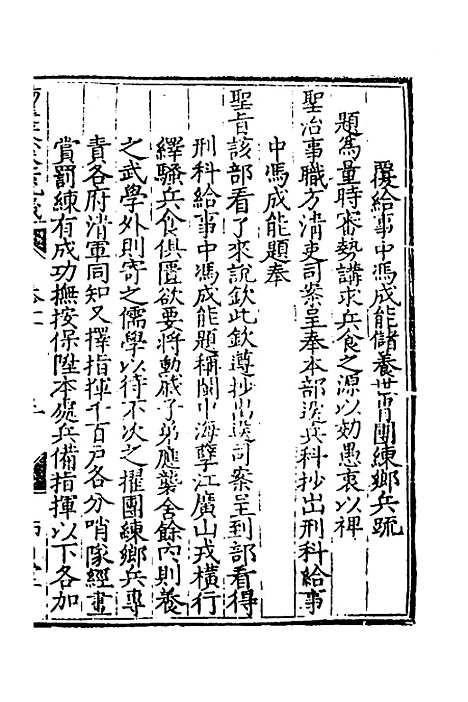 覆給事中馮成能儲養世胄團練鄉兵疏
題為量時審勢講求兵食之源以効愚衷以裨
聖治事職方清吏司案呈奉本部送兵科抄出刑科給事
中馮成能題奉
聖旨該部看了來說欽此欽遵抄出送司案呈到部看得
刑科給事中馮成能題稱閩中海孽江廣山戎橫行
繹騷兵食俱匱欲要將勳戚子弟應襲舍餘內則養
之武學外則寄之儒學以待不次之擢團練鄉兵專
責各府清軍同知又擇指揮千百戶各分哨隊經畫
賞罰練有成功撫按保陞本處兵備指揮以下各加